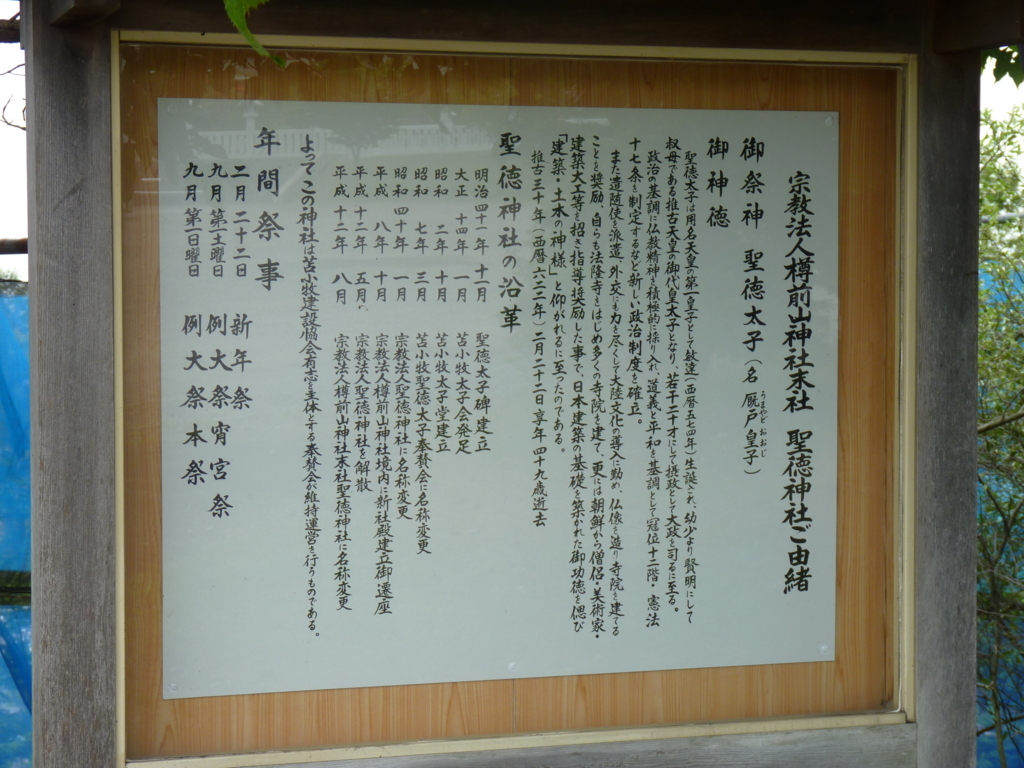 宗教法人樽前山神社末社 聖徳神社ご由緒
御祭神 聖徳太子(名 厩戸皇子)
うまやどおおじ
御神徳
聖徳太子は用明天皇の第一皇子として敏達(西暦五七四年)生誕され、幼少より賢明にして
叔母である推古天皇の御代皇太子となり、若干二十才にして摂政として大政を司るに至る。
政治の基調に仏教精神を積極的に採り入れ、道義と平和を基調として冠位十二階・憲法
十七条を制定するなど新しい政治制度を確立。
また遣随使を派遣、外交にも力を尽くして大陸文化の導入に勤め、仏像を造り寺院を建てる
ことを奨励、自らも法隆寺をはじめ多くの寺院を建て、更には朝鮮から僧侶・美術家・
建築大工等を招き指導奨励した事で、日本建築の基礎を築かれた御功徳を偲び
「建築・土木の神様」と仰がれるに至ったのである。
推古三十年(西暦六二二年)二月二十二日享年四十九歳逝去
聖徳神社の沿革
明治四十一年 十一月 聖徳太子碑と建立
大正 十四年 一月 苫小牧太子会発足
昭和 二年 十月 苫小牧太子堂建立
昭和 七年 三月 苫小牧聖徳太子奉賛会に名称変更
昭和四十年 一月 宗教法人聖徳神社に名称変更
平成 八年 十月 宗教法人樽前山神社境内に新社殿建立御遷座
平成 十二年 五月 宗教法人聖徳神社を解散
平成 十二年 八月 宗教法人樽前山神社末社聖徳神社に名称変更
よってこの神社は苫小牧建設協会有志を主体とする奉賛会が維持運営を行うものである。
年間祭事
二月二十二日 新年祭
九月第一土曜日 例大祭宵宮祭
九月第一日曜日 例大祭本祭